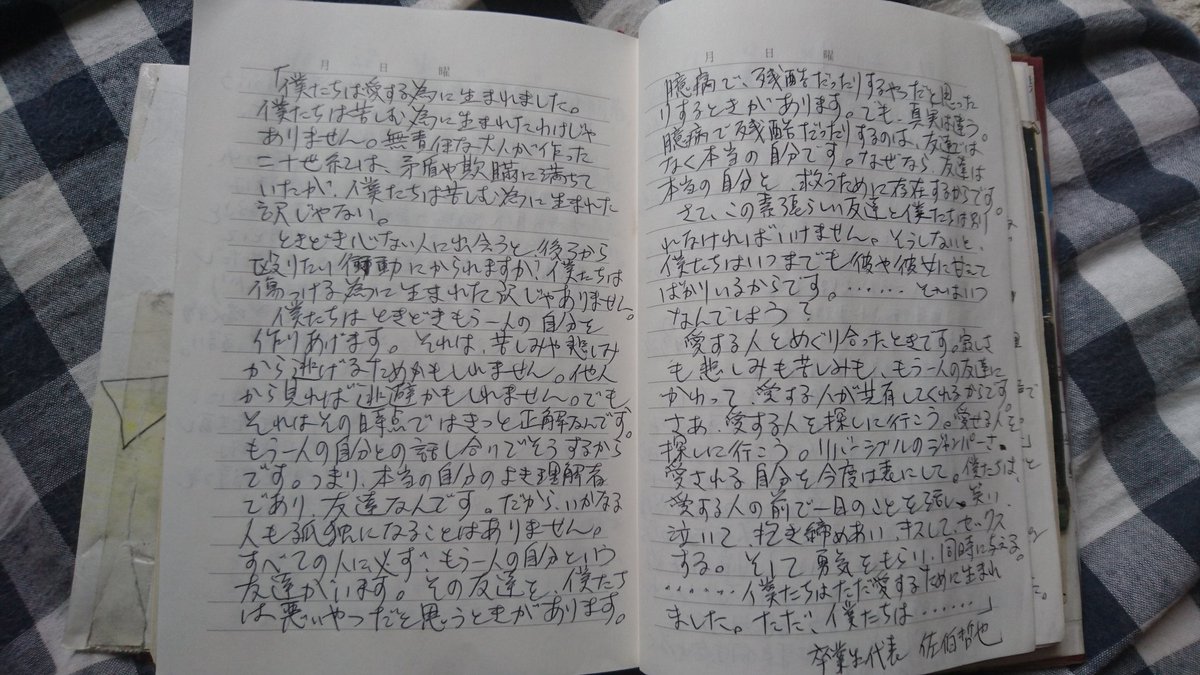 月 日 曜
「僕たちは愛する為に生まれました。
僕たちは苦しむ為に生まれたわけじゃ
ありません。無責任な大人が作った
二十世紀は、矛盾や欺瞞に満ちて
いたが、僕たちは苦しむ為に生まれた
訳じゃない。
ときどき心ない人に出会うと、後ろから
殴りたい衝動にかられますが、僕たちは
傷つける為に生まれた訳じゃありません。
僕たちはときどきもう一人の自分を
作りあげます。それは、苦しみや悲しみ
から逃げるためかもしれません。他人
から見れば逃避かもしれません。でも、
それはその時点ではきっと正解なんです。
もう一人の自分との話し合いでそうするから
です。つまり、本当の自分のよき理解者
であり、友達なんです。だから、いかなる
人も孤独になることはありません。
すべての人に必ず、もう一人の自分という
友達がいます。その友達を、僕たち
は悪いやつだと思うときがあります。
月 日 曜
臆病で、残酷だったりするやつだと思った
りするときがあります。でも、真実は違う。
臆病で残酷だったりするのは、友達では
なく本当の自分です。なぜなら、友達は
本当の自分を、救うために存在するからです。
さて、この素張らしい友達と僕たちは別
れなければいけません。そうしないと、
僕たちはいつまでも彼や彼女に甘えて
ばかりいるからです。…… それはいつ
なんでしょう?
愛する人とめぐり合ったときです。寂しさ
も悲しみも苦しみも、もう一人の友達に
かわって、愛する人が共有してくれるからです。
さあ、愛する人を探しに行こう。愛せる人を
探しに行こう。リバーシブルのジャンパーさ。
愛される自分を今度は表にして。僕たちは、
愛する人の前で一日のことを話し、笑い、
泣いて、抱き締めあい、キスして、セックス
する。そして勇気をもらい、同時に与える。
……僕たちはただ愛するために生まれ
ました。ただ、僕たちは……」
卒業生代表 佐伯哲也